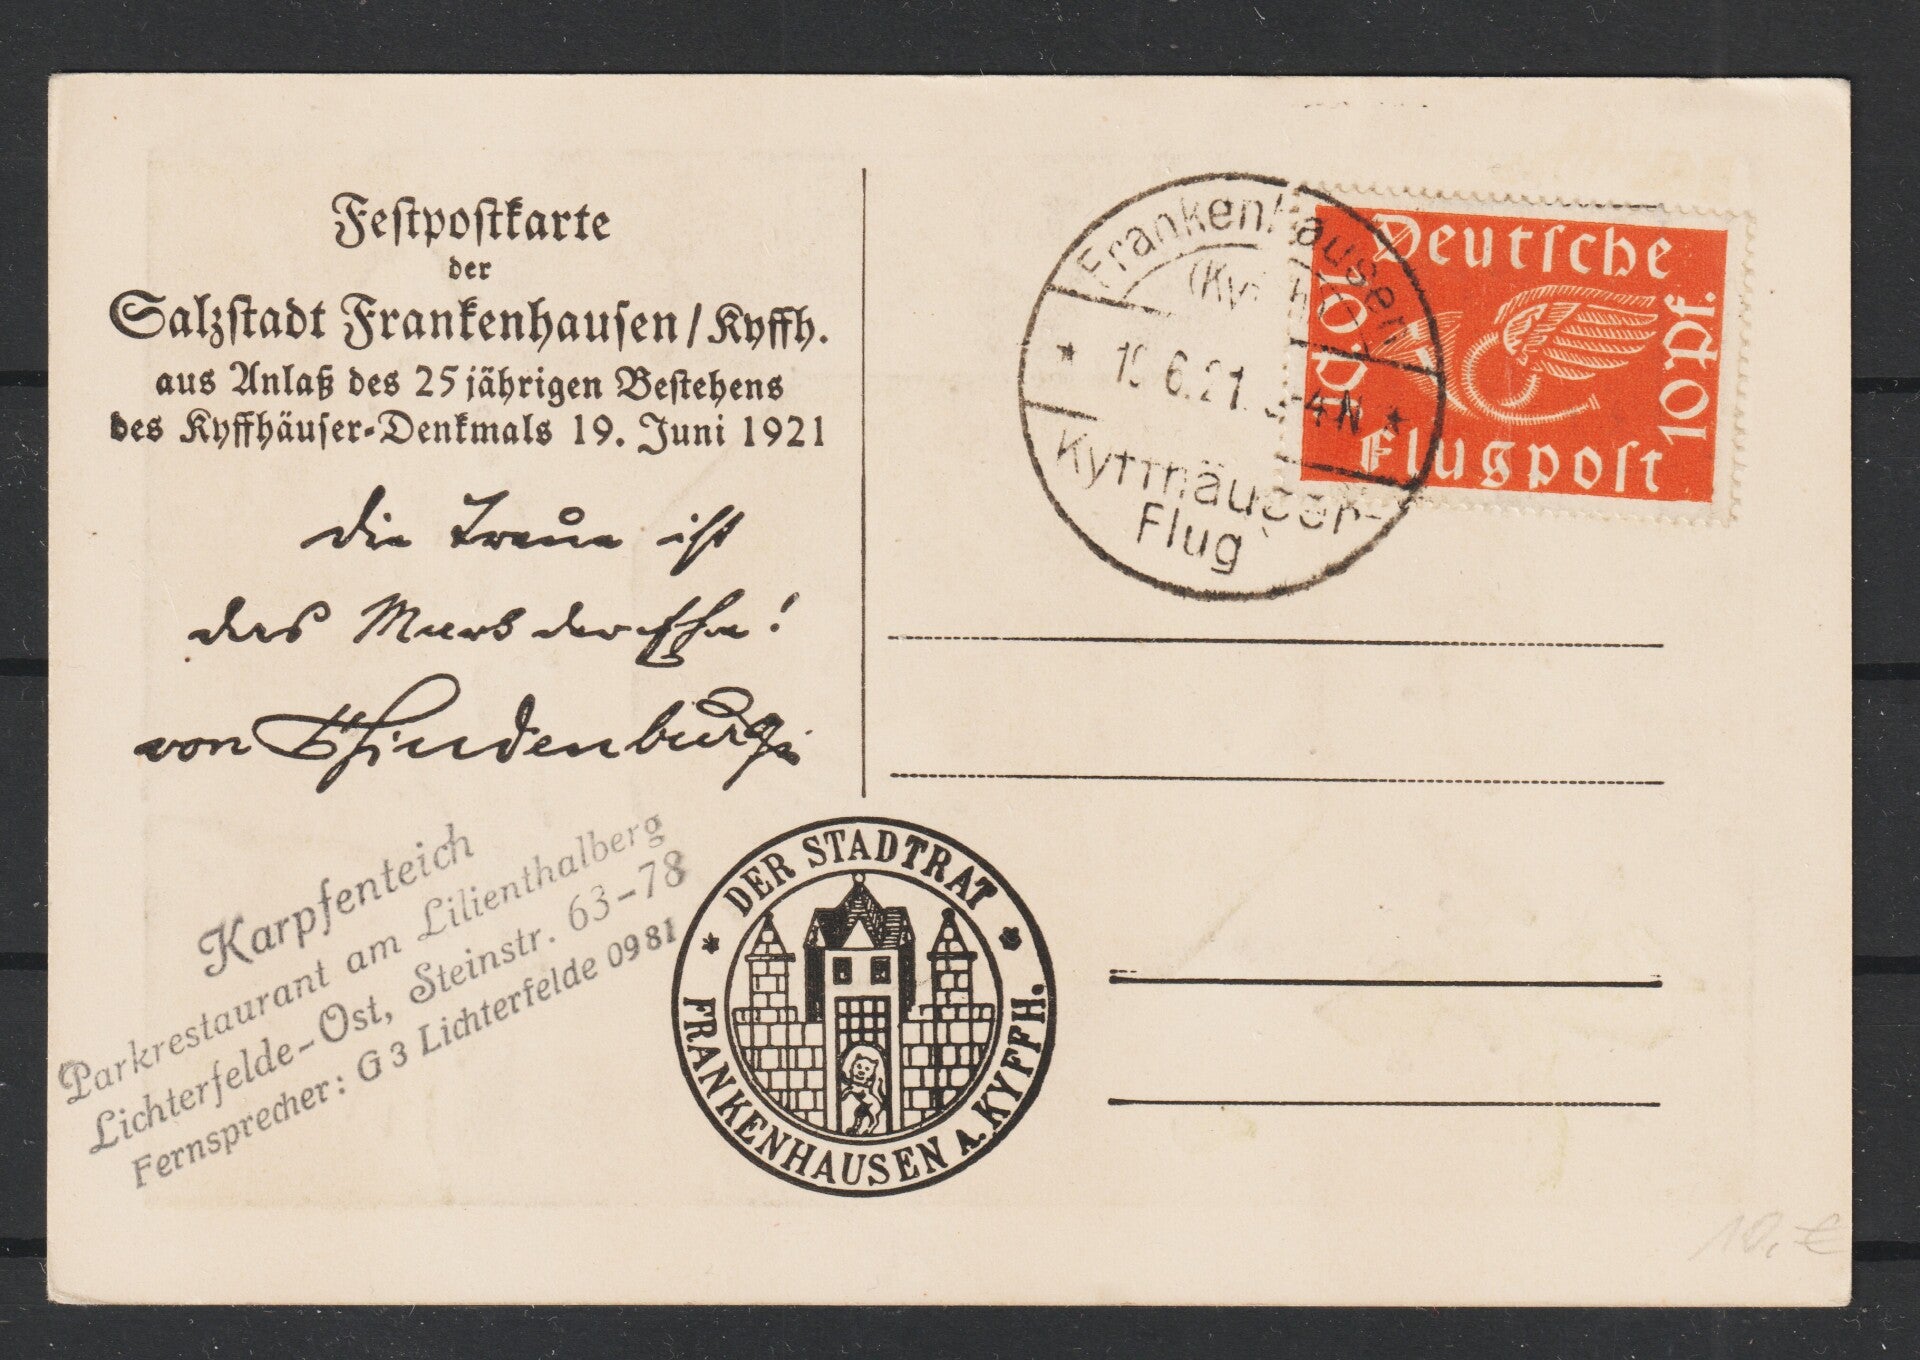 Festpostkarte
der
Salzstadt Frankenhausen/Kyffh.
aus Anlaß des 25jährigen Bestehens
des Kyffhäuser-Denkmals 19. Juni 1921
Die Treue ist
das Mark der Ehre!
von Hindenburg
Karpfenteich
Parkrestaurant am Lilienthalberg
Lichterfelde-Ost, Steinstr. 63-78
Fernsprecher: G3 Lichterfelde 0981
DER STADTRAT
FRANKENHAUSEN A. KYFFH.
Frankenhausen
(Kyffh)
6.21. -4 N
Kyffhäuser-
Flug
Deutsche
10 Pf.
10 Pf.
Flugpost
10,- €